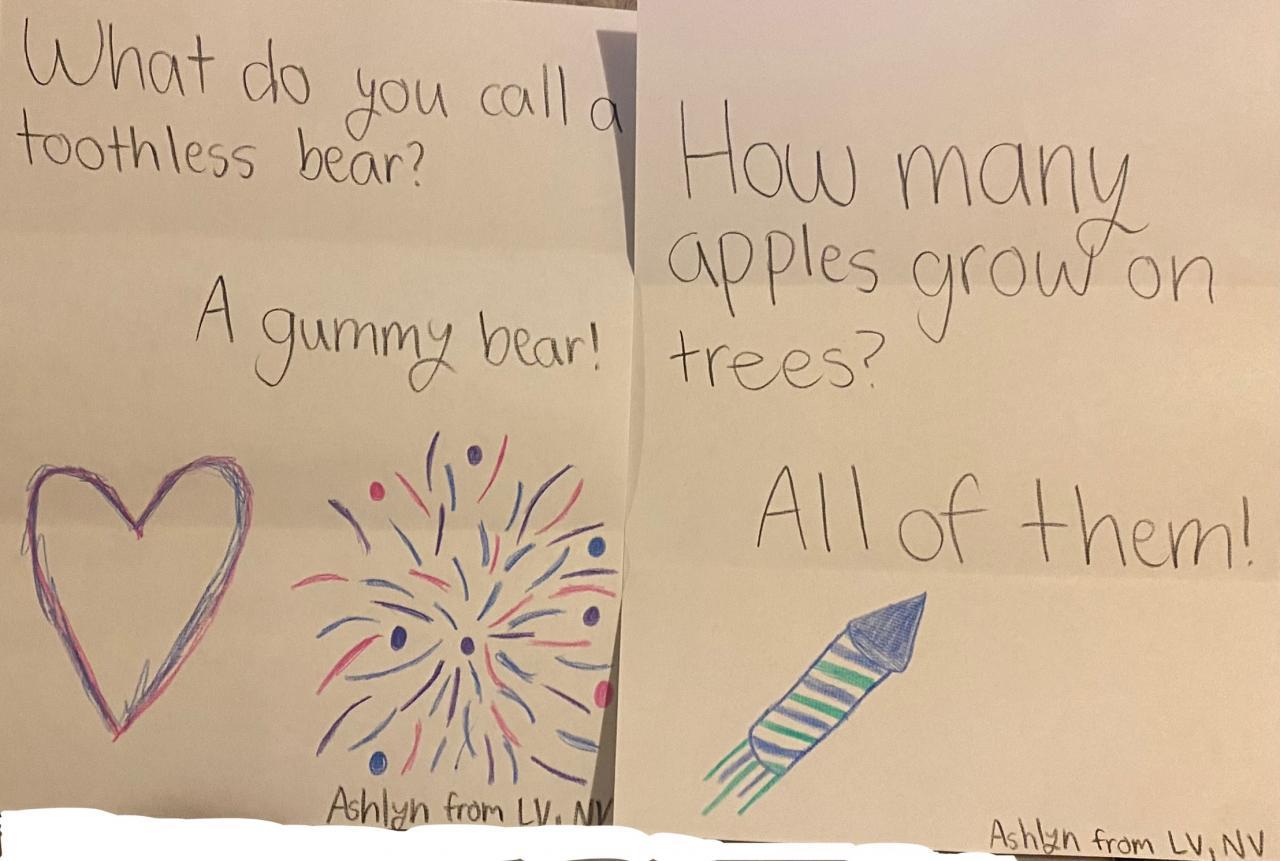 What do you call a
toothless bear?
A gummy bear!
Ashlyn from LV, NV
How many
apples grow on
trees?
All of them!
Ashlyn from LV, NV